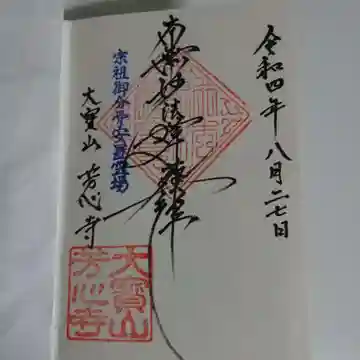 令和四年八月二七日
南無妙法蓮華経
宗祖御分骨安置霊場
大寳山 芳心寺
大寳山
芳心寺